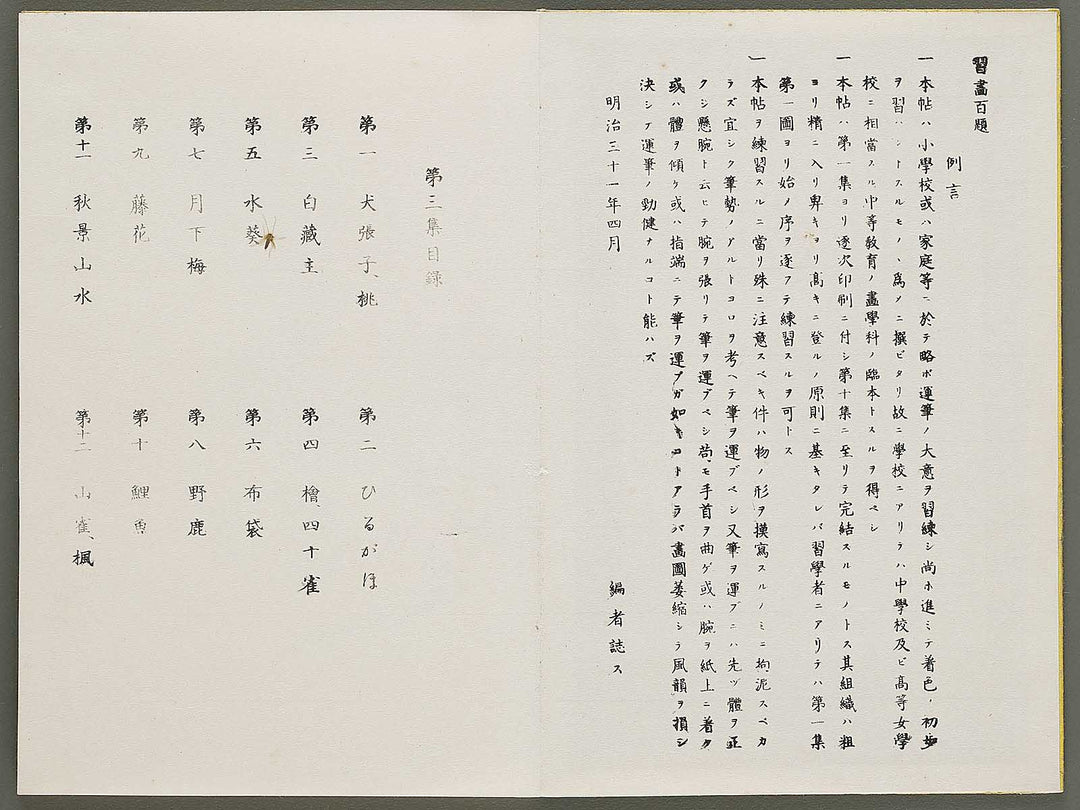 習畫百題
例言
一本帖ハ小學校或ハ家庭等ニ於テ略ボ運筆ノ大意ヲ習練シ尚ホ進ミテ着色ノ初歩
ヲ習ハントスルモノヽ爲メニ撰ビタリ故ニ學校ニアリテハ中學校及ビ高等女學
校ニ相當スル中等敎育ノ畫學科ノ臨本トスルヲ得ベシ
一本帖ハ第一集ヨリ逐次印刷ニ付シ第十集ニ至リテ完結スルモノトス其組織ハ粗
ヨリ精ニ入リ卑キヨリ高キニ登ルノ原則ニ基キタレバ習學者ニアリテハ第一集
第一圖ヨリ始メ序ヲ逐フテ練習スルヲ可トス
一本帖ヲ練習スルニ當リ殊ニ注意スベキ件ハ物ノ形ヲ摸寫スルノミニ拘泥スベカ
ラズ宜シク筆勢ノアルトコロヲ考ヘテ筆ヲ運ブベシ又筆ヲ運ブニハ先ヅ體ヲ正
クシ懸腕ト云ヒテ腕ヲ張リテ筆ヲ運ブベシ苟モ手首ヲ曲ゲ或ハ腕ヲ紙上ニ着ケ
或ハ體ヲ傾ケ或ハ指端ニテ筆ヲ運ブガ如キコトアラバ畫圖萎縮シテ風韻ヲ損シ
決シテ運筆ノ勁健ナルコト能ハズ
明治三十一年四月
編者誌ス
第三集目録
第一 犬張子、桃
第二 ひるがほ
第三 白藏主
第四 檜、四十雀
第五 水葵
第六 布袋
第七 月下梅
第八 野鹿
第九 藤花
第十 鯉魚
第十一 秋景山水
第十二 山雀、楓